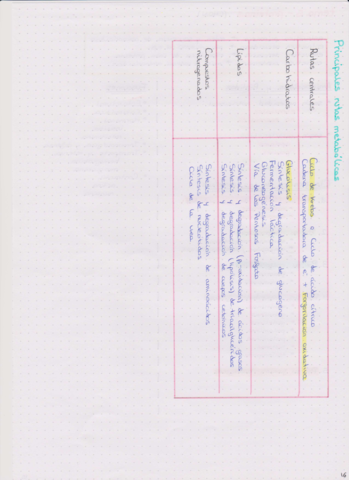 Principales rutas metabólicas
Rutas centrales
Ciclo de Krebs o Ciclo de ácido cítrico
Cadena transportadora de e⁻ + Fosforilación oxidativa
Carbohidratos
Glucólisis
Síntesis y degradación de glucógeno
Fermentación láctica
Gluconeogénesis
Vía de las Pentosas Fosfato
Lípidos
Síntesis y degradación (β-oxidación) de ácidos grasos
Síntesis y degradación (lipólisis) de triacilglicéridos
Síntesis y degradación de cuerpos cetónicos
Compuestos
nitrogenados
Síntesis y degradación de aminoácidos
Síntesis de nucleótidos
Ciclo de la urea